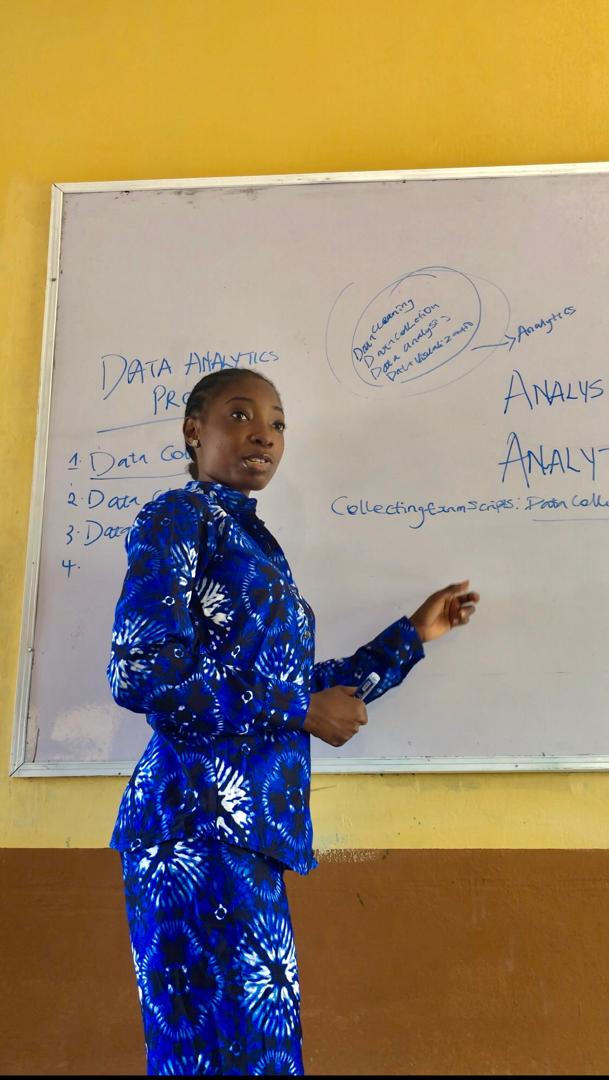 DATA ANALYTICS
1. Data Col
2. Data
3. Data
4.
Data cleaning
Data collection
Data analysis
Data Visualizatio
Analytics
ANALYS
ANALYT
Collecting Exam Scripts: Data Colle